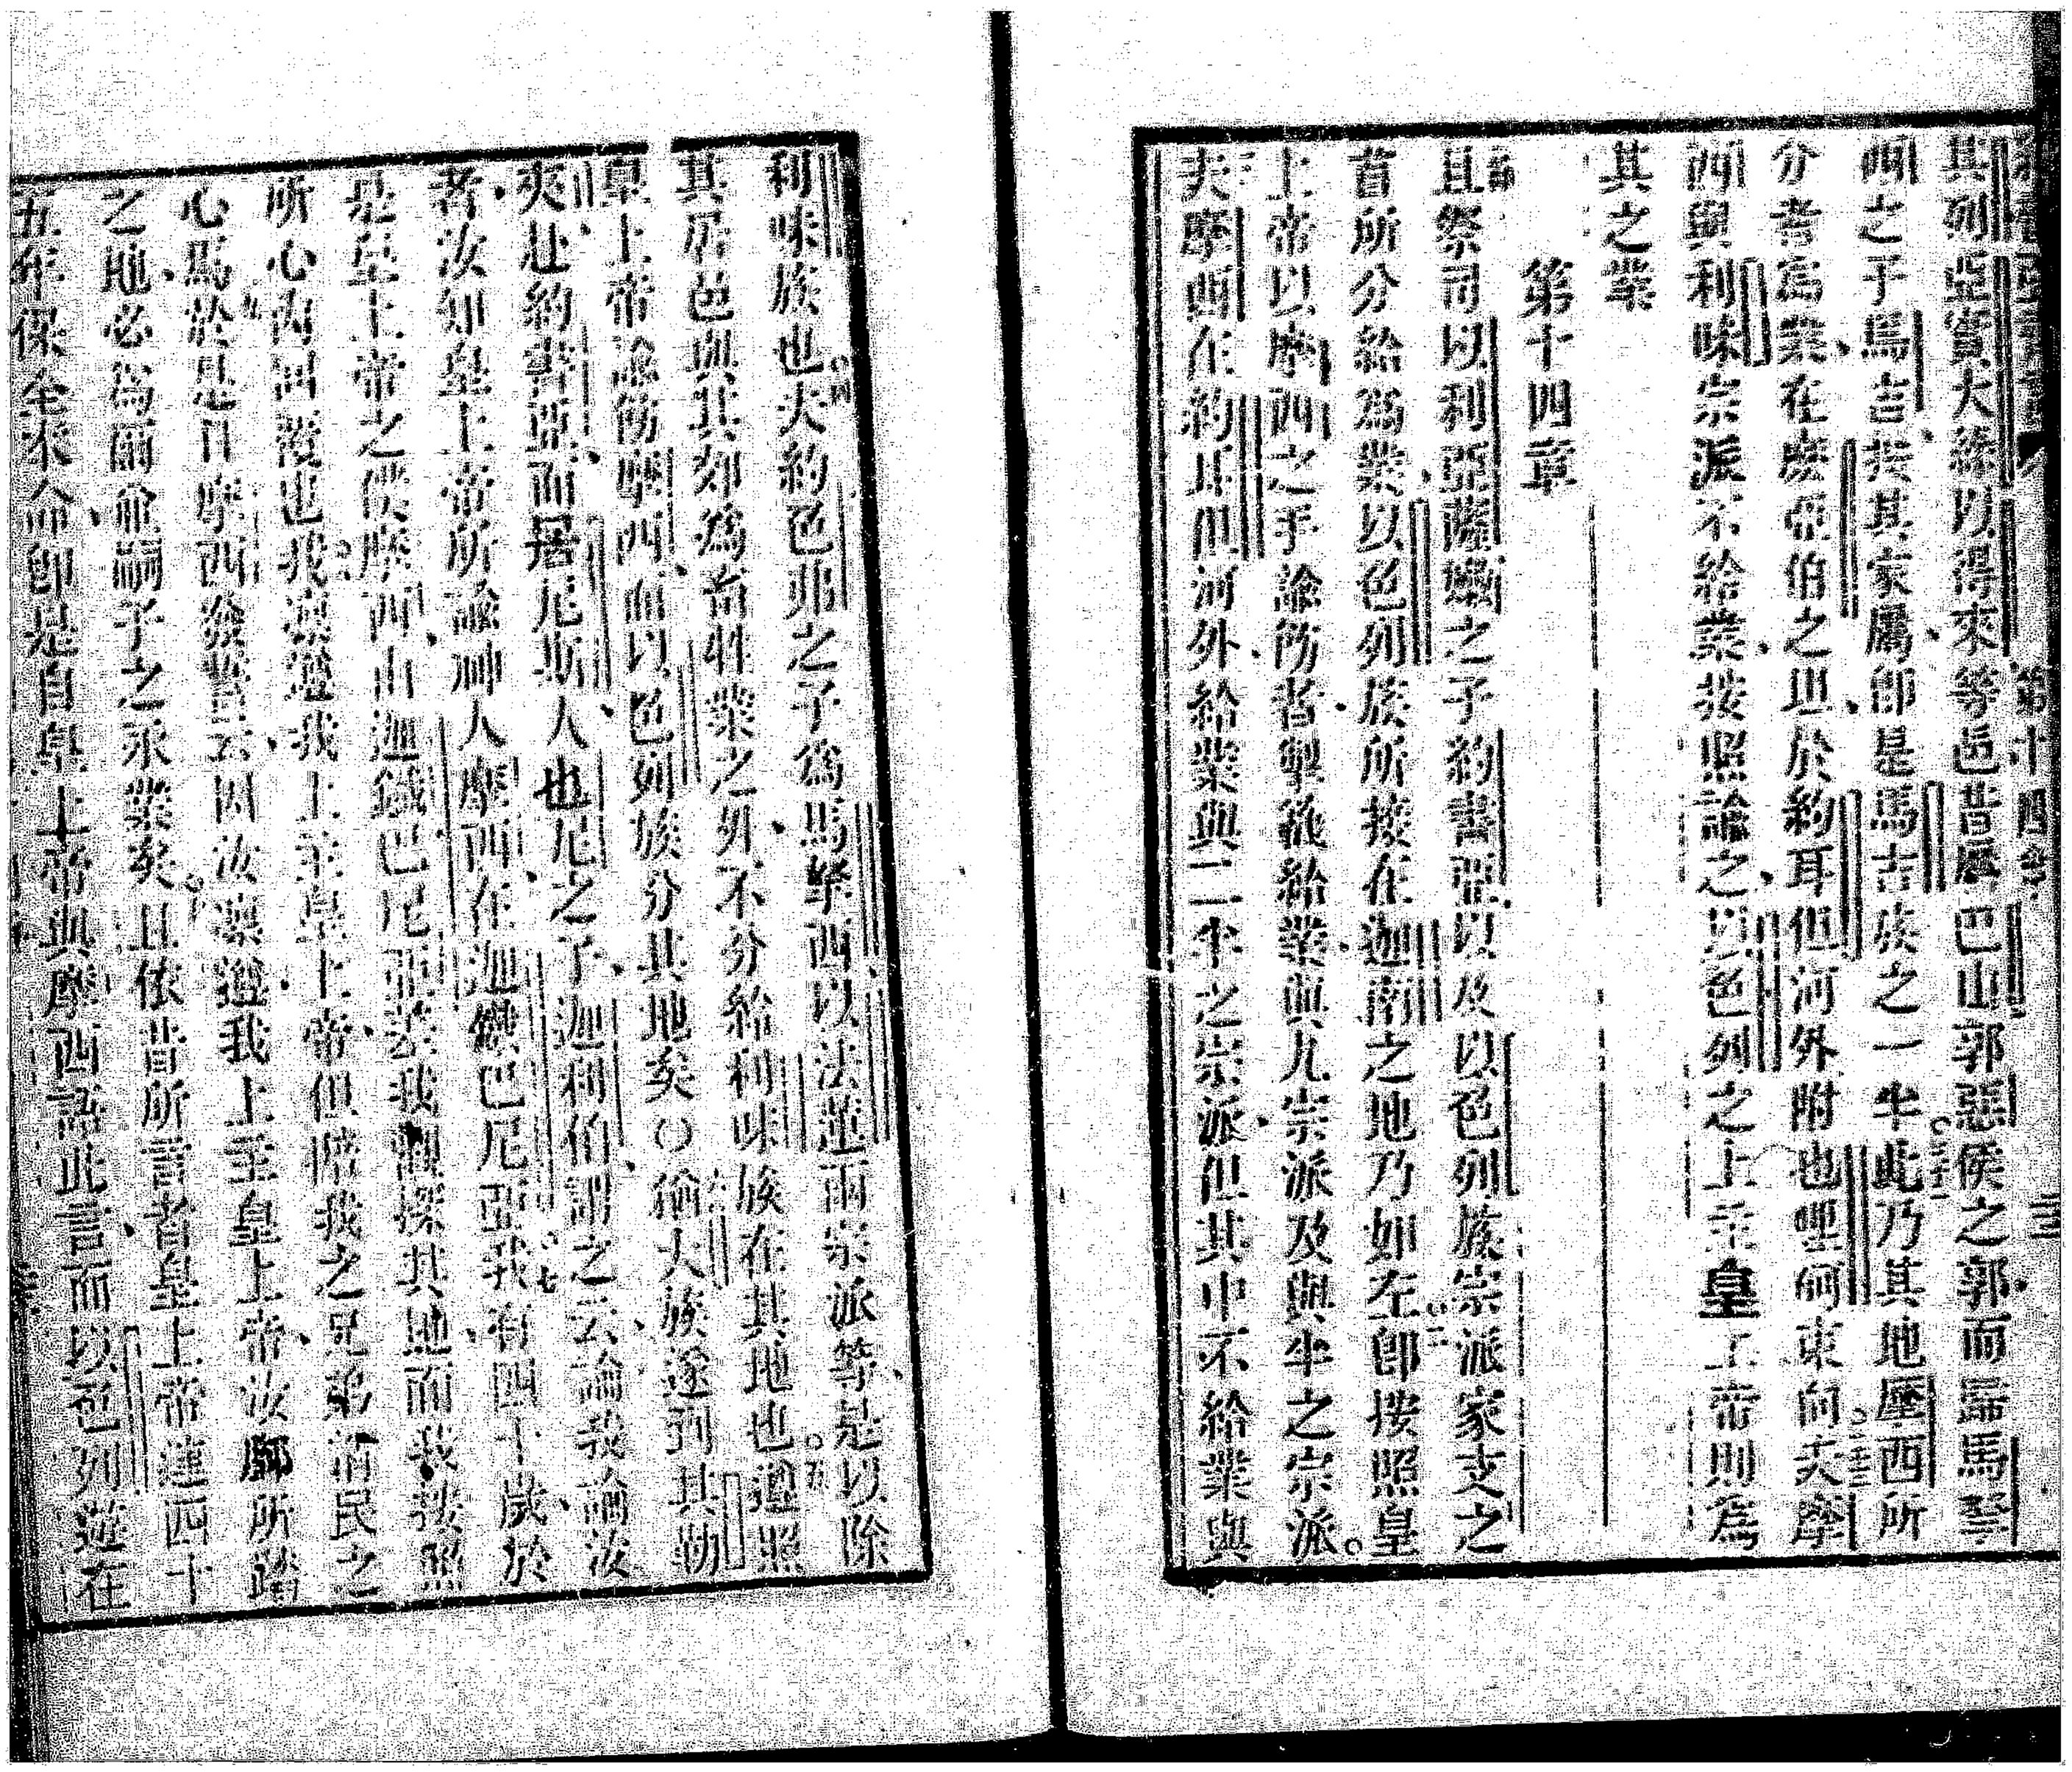 其列亞實大錄以得來等邑昔屬巴山郭惡侯之郭而歸馬拏
西之子馬吉族其家屬卽是馬吉族之一半此乃其地摩西所
分者為業在摩亞伯之坦於約耳但河外附也哩䦱東向夫摩
西與利味宗派不給業按照諭之以色列之上主皇上帝則為
其之業
第十四章
且祭司以利亞薩嫩之子約書亞以及以色列族宗派家支之
首所分給為業以色列族所接在迦南之地乃如左二卽按照皇
上帝以摩西之手諭飭者掣籤給業與九宗派及與半之宗派
三夫摩西在約耳但河外給業與二半之宗派但其中不給業與
利味族也四夫約色弗之子為馬拏西以法蓮兩宗派等是以除
其居邑與其郊為畜牲業之外不分給利味族在其地也五遵照
皇上帝諭飭摩西而以色列族分其地矣〇六猶大族遂到其勒
夾赴約書亞而居尼斯人也尼之子迦利伯謂之云論我論汝
者汝知皇上帝所諭神人摩西在迦鐵巴尼亞七我有四十歲於
是皇上帝之僕摩西由迦鐵巴尼亞去我視探其地而我按照
所心內回復也八我凜遵我上主皇上帝但陪我之兄弟消民之
心焉九於是日摩西發誓云因汝凜遵我上主皇上帝汝腳所踏
之地必為爾並嗣子之永業矣十且依昔所言者皇上帝達四十
五年保全我今卽是自皇上帝與摩西語此言而以色列遊在
第十四章